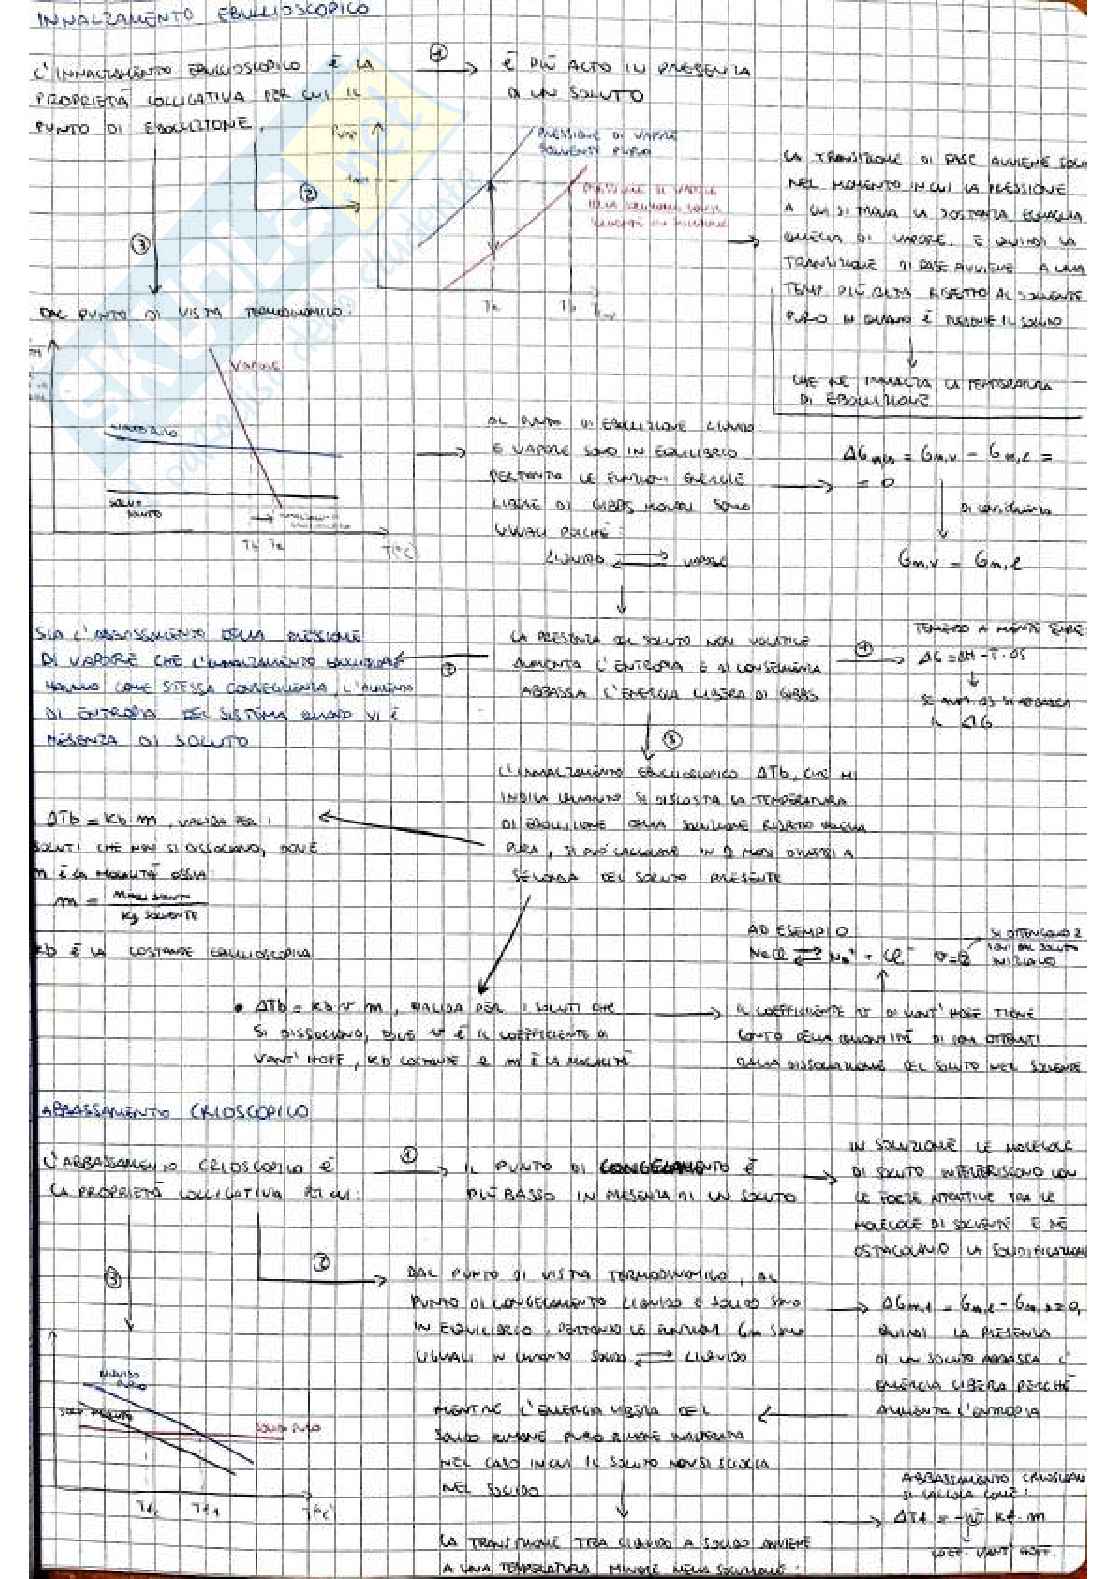 INNALZAMENTO EBULLIOSCOPICO
L'INNALZAMENTO EBULLIOSCOPICO È LA
PROPRIETÀ COLLIGATIVA PER CUI IL
PUNTO DI EBOLLIZIONE,
①
È PIÙ ALTO IN PRESENZA
DI UN SOLUTO
②
PRESSIONE DI VAPORE
SOLVENTE PURO
PRESSIONE DI VAPORE
LA TRANSIZIONE DI FASE AVVIENE SOLO
NEL MOMENTO IN CUI LA PRESSIONE
A CUI SI TROVA LA SOSTANZA EGUAGLIA
QUELLA DI VAPORE. E QUINDI LA
TRANSIZIONE DI FASE AVVIENE A UNA
TEMP. PIÙ ALTA RISPETTO AL SOLVENTE
PURO IN QUANTO È PRESENTE IL SOLUTO
CHE NE INNALZA LA TEMPERATURA
DI EBOLLIZIONE
③
DAL PUNTO DI VISTA TERMODINAMICO:
VAPORE
LIQUIDO PURO
T(°C)
AL PUNTO DI EBOLLIZIONE LIQUIDO
E VAPORE SONO IN EQUILIBRIO
PERTANTO LE FUNZIONI ENERGIE
LIBERE DI GIBBS MOLARI SONO
UGUALI POICHÉ:
LIQUIDO ⇄ VAPORE
= Gm,v - Gm,l =
= 0
DI CONSEGUENZA
Gm,v = Gm,l
LA PRESENZA DEL SOLUTO NON VOLATILE
AUMENTA L'ENTROPIA E DI CONSEGUENZA
ABBASSA L'ENERGIA LIBERA DI GIBBS
TENENDO A MENTE
ΔG = ΔH - T·ΔS
SE AUM. ΔS SI ABBASSA
ΔG
SIA L'ABBASSAMENTO DELLA PRESSIONE
DI VAPORE CHE L'INNALZAMENTO
HANNO COME STESSA CONSEGUENZA, L'AUMENTO
DI ENTROPIA DEL SISTEMA QUANDO VI È
PRESENZA DI SOLUTO
③
L'INNALZAMENTO EBULLIOSCOPICO ΔTb, CHE MI
INDICA QUANTO SI DISCOSTA LA TEMPERATURA
DI EBOLLIZIONE DELLA SOLUZIONE RISPETTO QUELLA
PURA, SI PUÒ CALCOLARE IN 2 MODI DIVERSI A
SECONDA DEL SOLUTO PRESENTE
ΔTb = Kb·m, VALIDA PER I
SOLUTI CHE NON SI DISSOCIANO, DOVE
m È LA MOLALITÀ OSSIA:
m = MOLI SOLUTO
Kg SOLVENTE
Kb È LA COSTANTE EBULLIOSCOPICA
• ΔTb = Kb·ν·m, VALIDA PER I SOLUTI CHE
SI DISSOCIANO, DOVE ν È IL COEFFICIENTE DI
VANT'HOFF, Kb COSTANTE E m È LA MOLALITÀ
AD ESEMPIO
NaCl ⇄ Na⁺ + Cl⁻ ν=2
SI OTTENGONO 2
IONI DAL SOLUTO
INIZIALE
IL COEFFICIENTE ν DI VANT'HOFF TIENE
CONTO DELLA QUANTITÀ DI IONI OTTENUTI
DALLA DISSOCIAZIONE DEL SOLUTO NEL SOLVENTE
ABBASSAMENTO CRIOSCOPICO
L'ABBASSAMENTO CRIOSCOPICO È
LA PROPRIETÀ COLLIGATIVA PER CUI:
①
IL PUNTO DI CONGELAMENTO È
PIÙ BASSO IN PRESENZA DI UN SOLUTO
IN SOLUZIONE LE MOLECOLE
DI SOLUTO INTERFERISCONO CON
LE FORZE ATTRATTIVE TRA LE
MOLECOLE DI SOLVENTE E NE
OSTACOLANO LA SOLIDIFICAZIONE
②
DAL PUNTO DI VISTA TERMODINAMICO, AL
PUNTO DI CONGELAMENTO LIQUIDO E SOLIDO SONO
IN EQUILIBRIO, PERTANTO LE FUNZIONI Gm SONO
UGUALI IN QUANTO SOLIDO ⇄ LIQUIDO
= Gm,l - Gm,s = 0,
QUINDI LA PRESENZA
DI UN SOLUTO ABBASSA L'
ENERGIA LIBERA PERCHÉ
AUMENTA L'ENTROPIA
③
LIQUIDO
PURO
SOLIDO PURO
MENTRE L'ENERGIA LIBERA DEL
SOLIDO RIMANE
NEL CASO IN CUI IL SOLUTO NON SI SCIOLGA
NEL SOLIDO
LA TRANSIZIONE TRA LIQUIDO A SOLIDO AVVIENE
A UNA TEMPERATURA MINORE NELLA SOLUZIONE:
ABBASSAMENTO
SI CALCOLA COME:
ΔTf = -ν·Kf·m
COEFF. VANT'HOFF